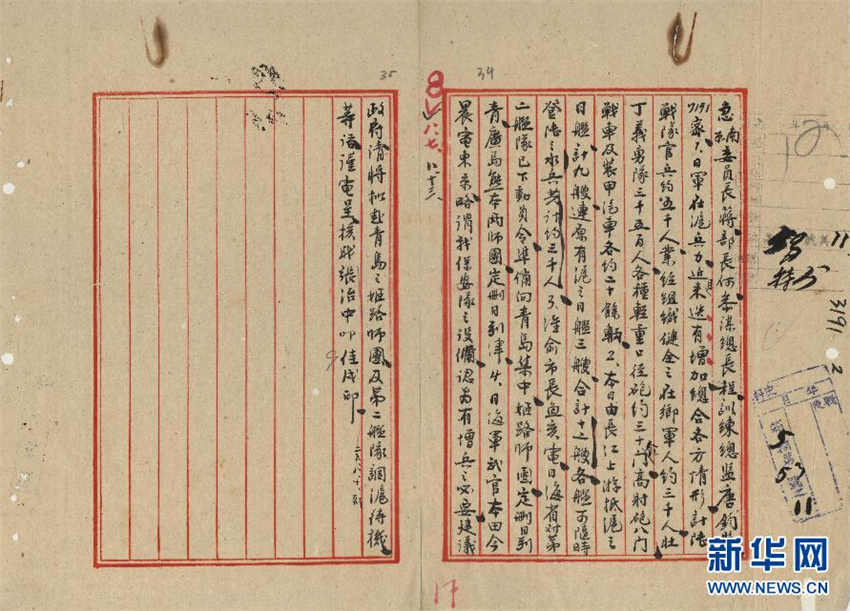 急南京委員長蔣部長何參謀總長程訓練總監唐鈞
7193密1.日軍在滬兵力近來迭有增加總合各方情形計陸
戰隊官兵約五千人業經組織健全之在鄉軍人約三千人壯
丁義勇隊三千五百人各種輕重口徑砲約三十餘門高射砲八門
戰車及裝甲汽車各約二十餘輛2.本日由長江上游抵滬之
日艦計九艘連原有滬之日艦三艘合計十二艘各艦可隨時
登陸之水兵共計約三千人3.准俞市長魚亥電日海省對第
二艦隊已下動員令準備向青島集中姬路師團定刪日到
青廣島熊本兩師團定刪日到津4.日海軍武官本田今
晨電東京略謂我保安隊之設備認為有增兵之必要建議
政府請將擬赴青島之姬路師團及第二艦隊調滬待機
等語謹電呈核職張治中叩佳戌印
34
35
3191
11
2
新华网
WWW.NEWS.CN